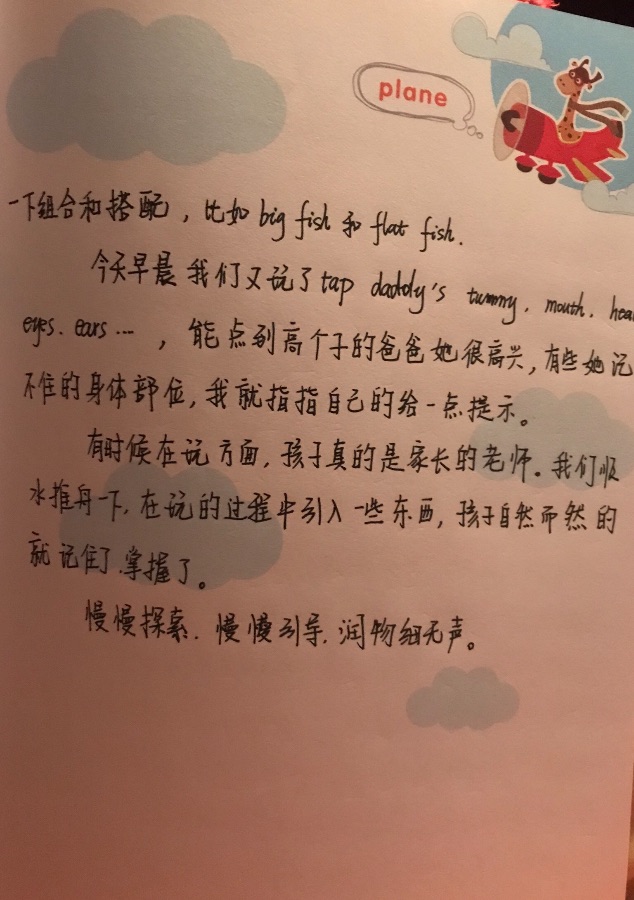 plane
一下组合和搭配，比如big fish和flat fish.
今天早晨我们又玩了tap daddy's tummy, mouth, hea
eyes、ears…，能点到高个子的爸爸她很高兴，有些她记
不住的身体部位，我就指指自己的给一点提示。
有时候在玩方面，孩子真的是家长的老师。我们顺
水推舟一下，在玩的过程中引入一些东西，孩子自然而然的
就记住了，掌握了。
慢慢探索，慢慢引导，润物细无声。